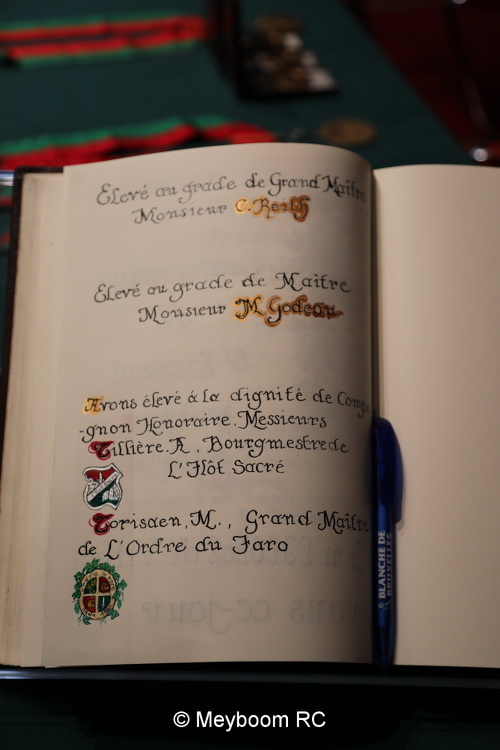 Elevé au grade de Grand Maître
Monsieur C. Reith
Elevé au grade de Maître
Monsieur M. Godeau
Avons élevé à la dignité de
-gnon Honoraire. Messieurs
Tillière. A, Bourgmestre de
L'Ilôt Sacré
Torisaen, M., Grand Maître
de L'Ordre du Faro
BLANCHE DE
BRUXELLES
© Meyboom RC